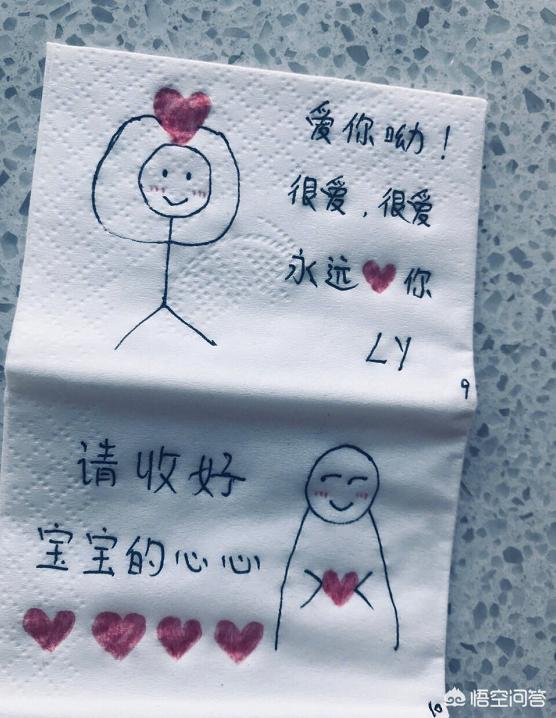 爱你呦！
很爱，很爱
永远❤你
LY
9
请收好
宝宝的心心
10
悟空问答